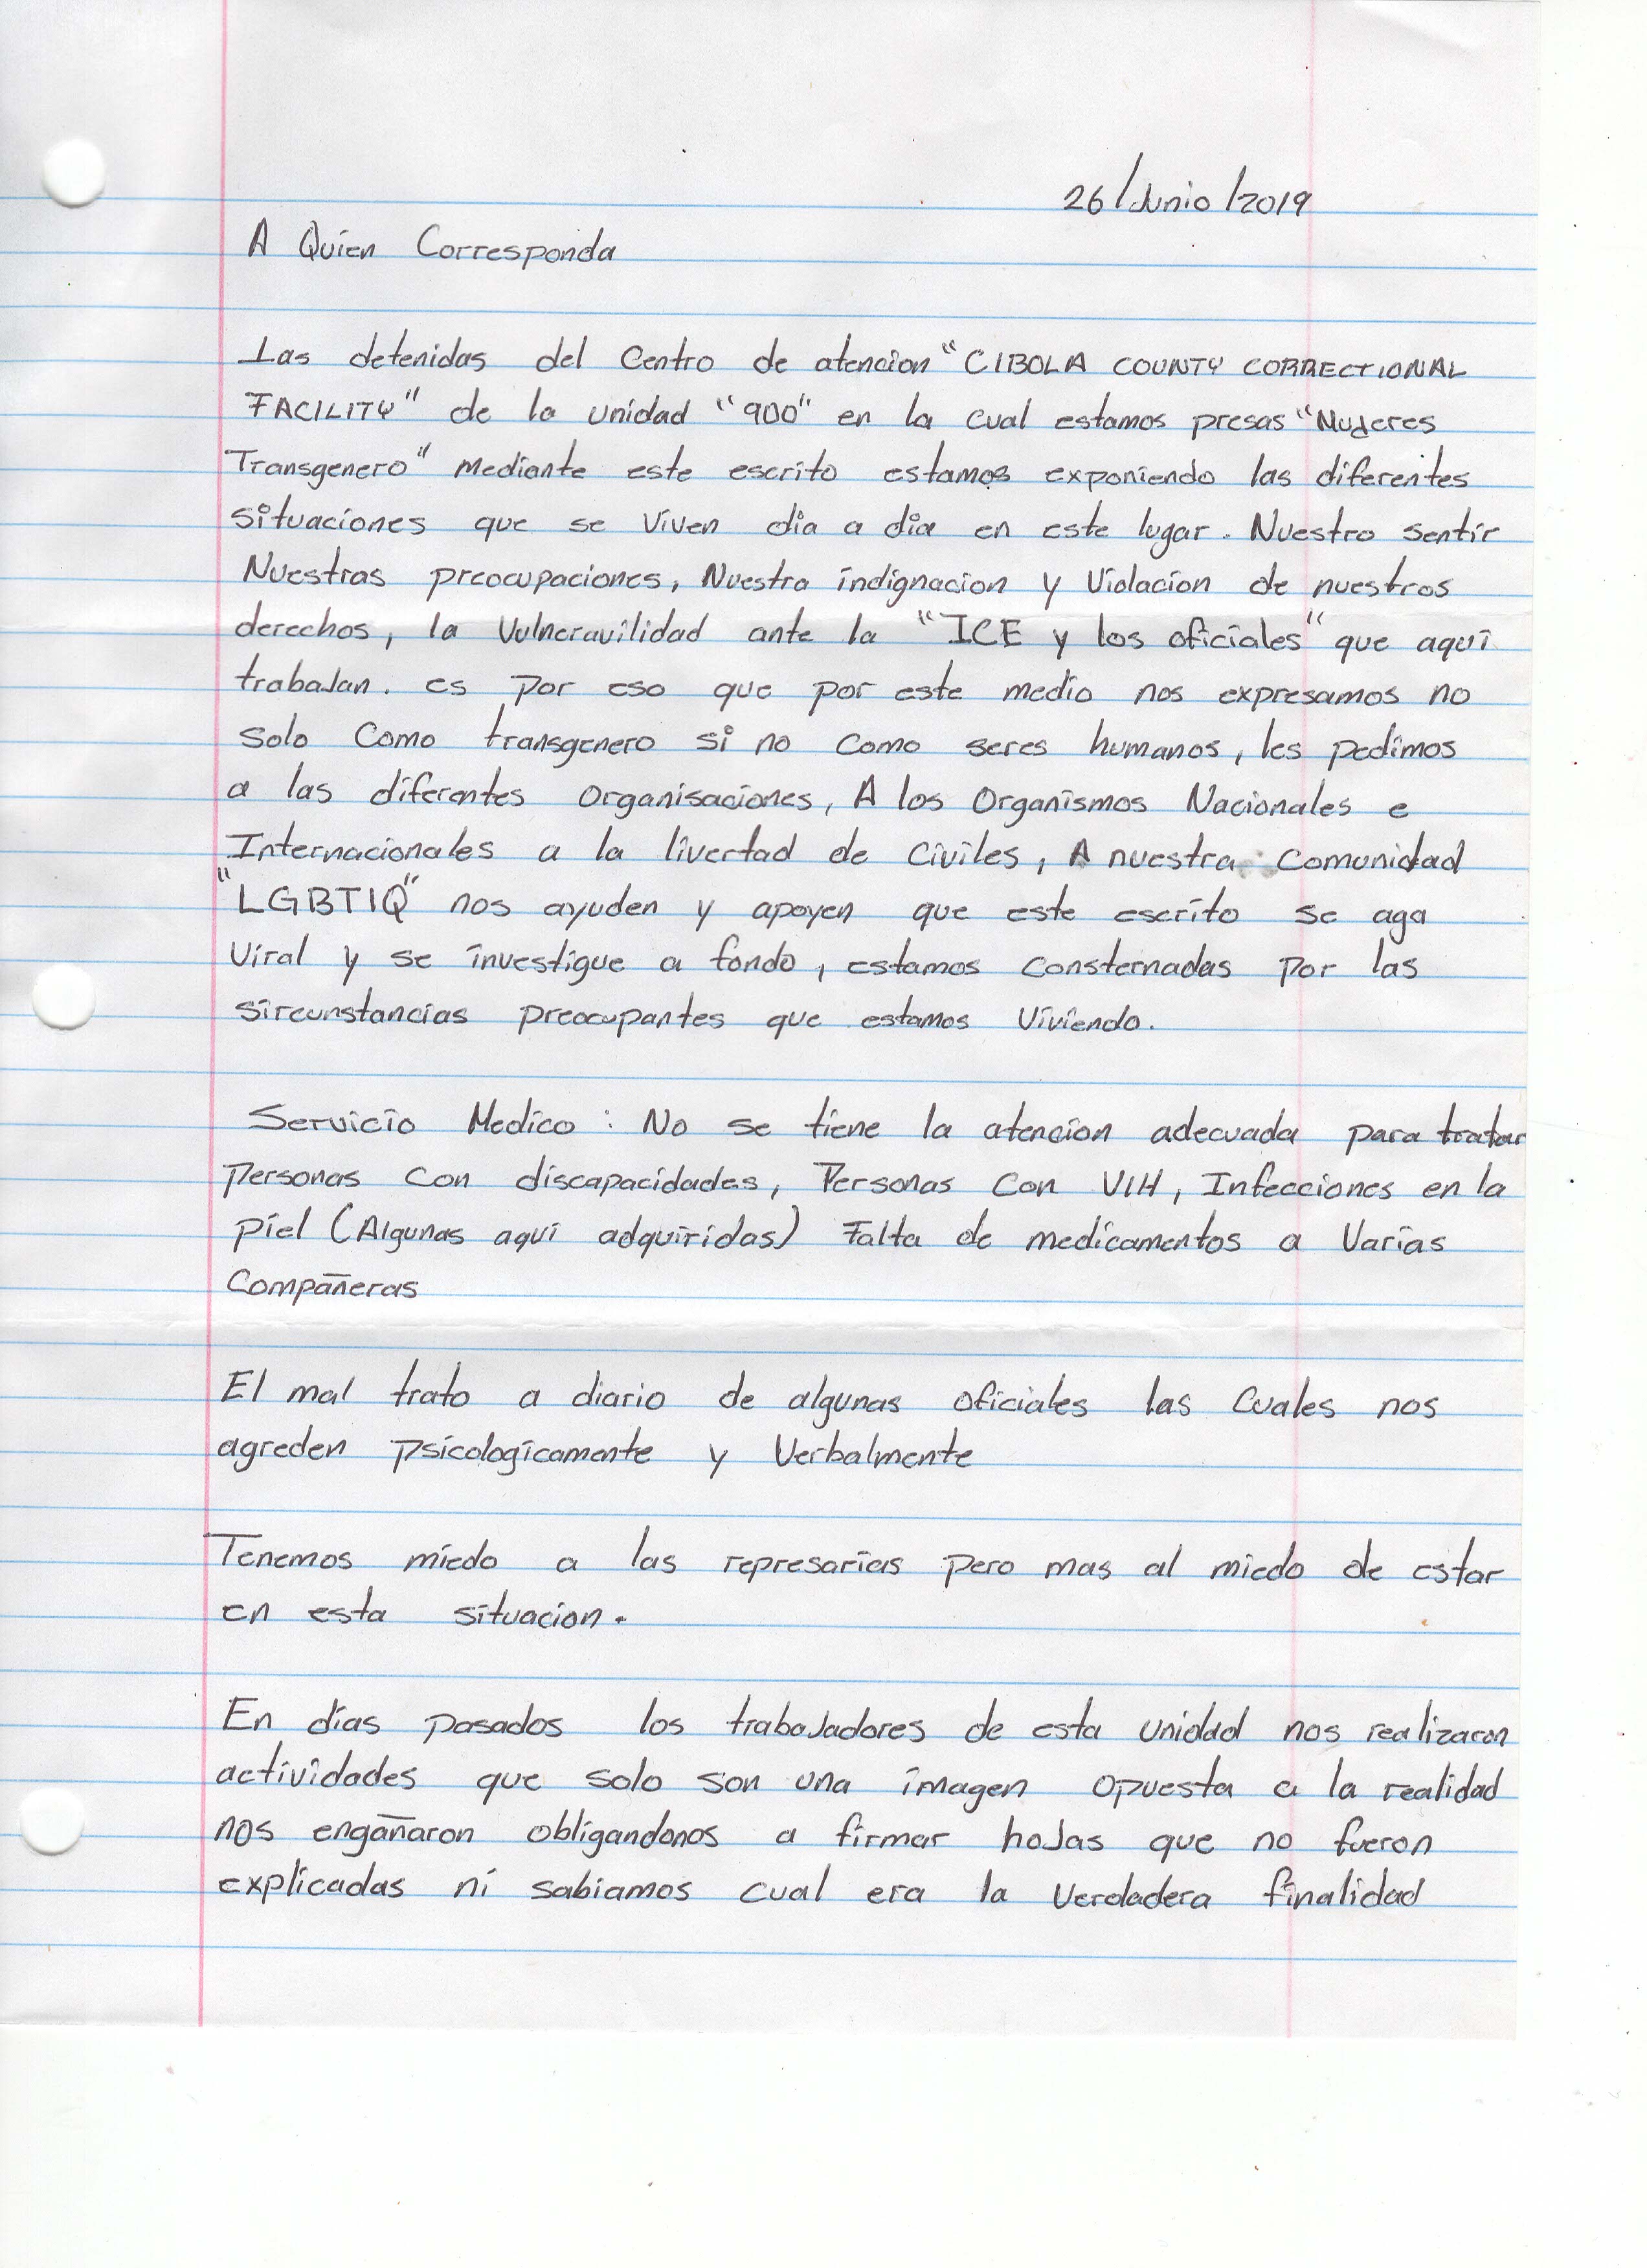 26/Junio/2019
A Quien Corresponda
Las detenidas del Centro de atencion "CIBOLA COUNTY CORRECTIONAL
FACILITY" de la unidad "900" en la cual estamos presas "Mujeres
Transgenero" Mediante este escrito estamos exponiendo las diferentes
situaciones que se viven dia a dia en este lugar. Nuestro sentir
Nuestras preocupaciones, Nuestra indignacion y Violacion de nuestros
derechos, la Vulneravilidad ante la "ICE y los oficiales" que aqui
trabajan. es por eso que por este medio nos expresamos no
solo como transgenero si no como seres humanos, les pedimos
a las diferentes organisaciones, A los Organismos Nacionales e
Internacionales a la livertad de Civiles, A nuestra Comunidad
"LGBTIQ" nos ayuden y apoyen que este escrito se aga
Viral y se investigue a fondo, estamos consternadas por las
sircunstancias preocupantes que estamos Viviendo.
Servicio Medico: No se tiene la atencion adecuada para tratar
personas con discapacidades, Personas con VIH, Infecciones en la
piel (Algunas aqui adquiridas) Falta de medicamentos a Varias
Compañeras
El mal trato a diario de algunas oficiales las cuales nos
agreden psicologicamente y Verbalmente
Tenemos miedo a las represarias pero mas al miedo de estar
en esta situacion.
En dias pasados los trabajadores de esta unidad nos realizaron
actividades que solo son una imagen opuesta a la realidad
nos engañaron obligandonos a firmar hojas que no fueron
explicadas ni sabiamos cual era la Verdadera finalidad